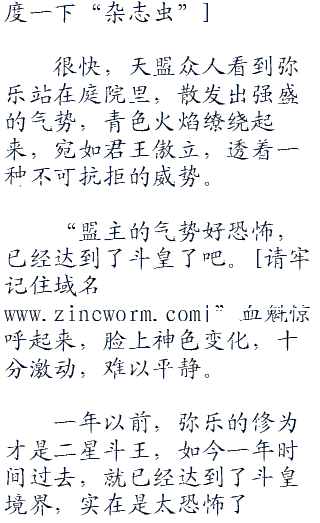 度一下“杂志虫”]
很快，天盟众人看到弥
乐站在庭院里，散发出强盛
的气势，青色火焰缭绕起
来，宛如君王傲立，透着一
种不可抗拒的威势。
“盟主的气势好恐怖，
已经达到了斗皇了吧。[请牢
记住域名
www.zincworm.com|”血魁惊
呼起来，脸上神色变化，十
分激动，难以平静。
一年以前，弥乐的修为
才是二星斗王，如今一年时
间过去，就已经达到了斗皇
境界，实在是太恐怖了